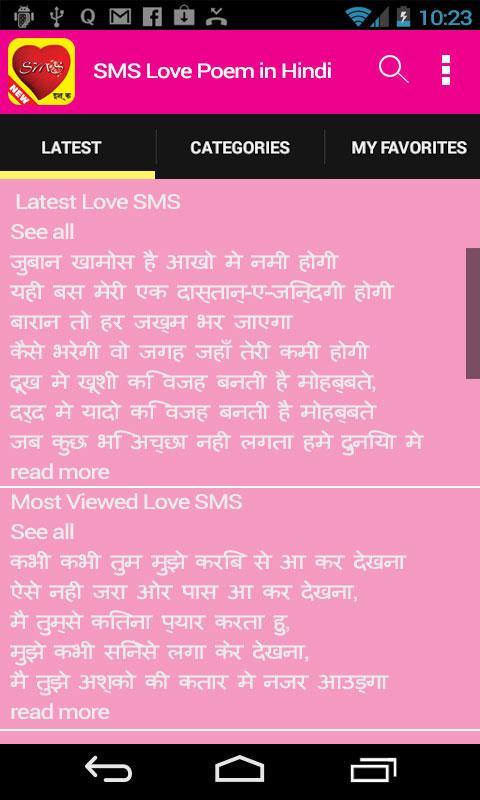 10:23
SMS
NEW
इश्क
SMS Love Poem in Hindi
LATEST
CATEGORIES
MY FAVORITES
Latest Love SMS
See all
जुबान खामोस है आखो मे नमी होगी
यही बस मेरी एक दास्तान्-ए-जिन्दगी होगी
बारान तो हर जख्म भर जाएगा
कैसे भरेगी वो जगह जहाँ तेरी कमी होगी
दूख मे खूशी कि वजह बनती है मोहब्बते,
दर्द मे यादो कि वजह बनती है मोहब्बते
जब कुछ भि अच्छा नही लगता हमे दुनिया मे
read more
Most Viewed Love SMS
See all
कभी कभी तुम मुझे करिब से आ कर देखना
ऐसे नही जरा ओर पास आ कर देखना,
मै तुम्से कितना प्यार करता हु,
मुझे कभी सिनेसे लगा केर देखना,
मै तुझे अश्को की कतार मे नजर आउड्गा
read more